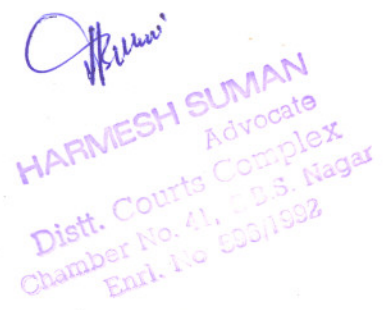 HARMESH SUMAN
Advocate
Distt. Courts Complex
Chamber No. 41, S.B.S. Nagar
Enrl. No 596/1992